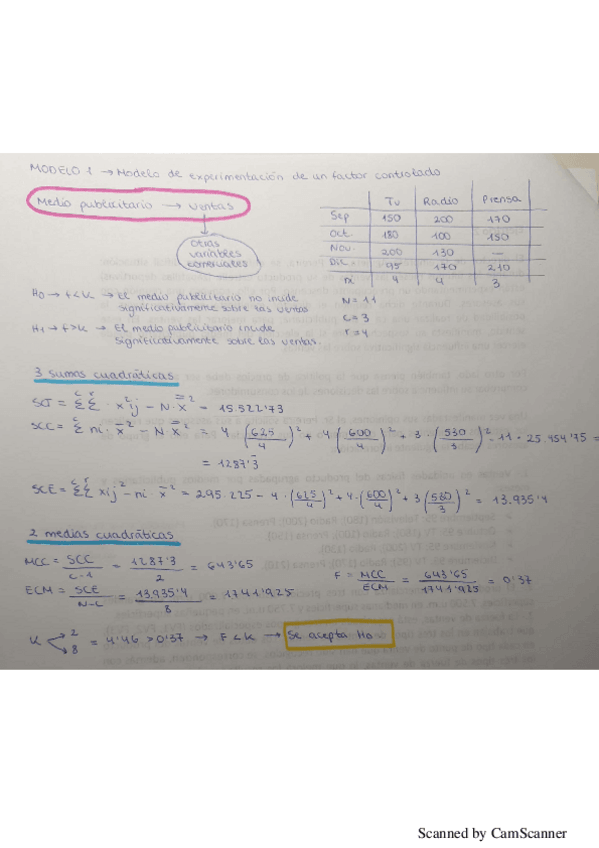 MODELO 1 → Modelo de experimentación de un factor controlado
Medio publicitario → Ventas
Otras variables comerciales
Tv Radio Prensa
Sep 150 200 170
Oct. 180 100 150
Nov. 200 130 —
Dic. 95 170 210
ni 4 4 3
N = 11
C = 3
r = 4
H0 → F<K → El medio publicitario no incide
significativamente sobre las ventas
H1 → F>K → El medio publicitario incide
significativamente sobre las ventas.
3 sumas cuadráticas
SCT = Σ Σ x²ij - N·x̄² = 15.522'73
SCC = Σ ni·x̄² - N x̄² = 4·(625/4)² + 4·(600/4)² + 3·(530/3)² - 11·25.454'75 =
= 1287'3
SCE = Σ Σ xij² - ni·x̄² = 295.225 - 4·(625/4)² + 4·(600/4)² + 3(530/3)² = 13.935'4
2 medias cuadráticas
MCC = SCC/C-1 = 1287'3/2 = 643'65
F = MCC/ECM = 643'65/1741'925 = 0'37
ECM = SCE/N-C = 13.935'4/8 = 1741'925
K 2 8 = 4'46 > 0'37 → F<K → Se acepta H0
Scanned by CamScanner